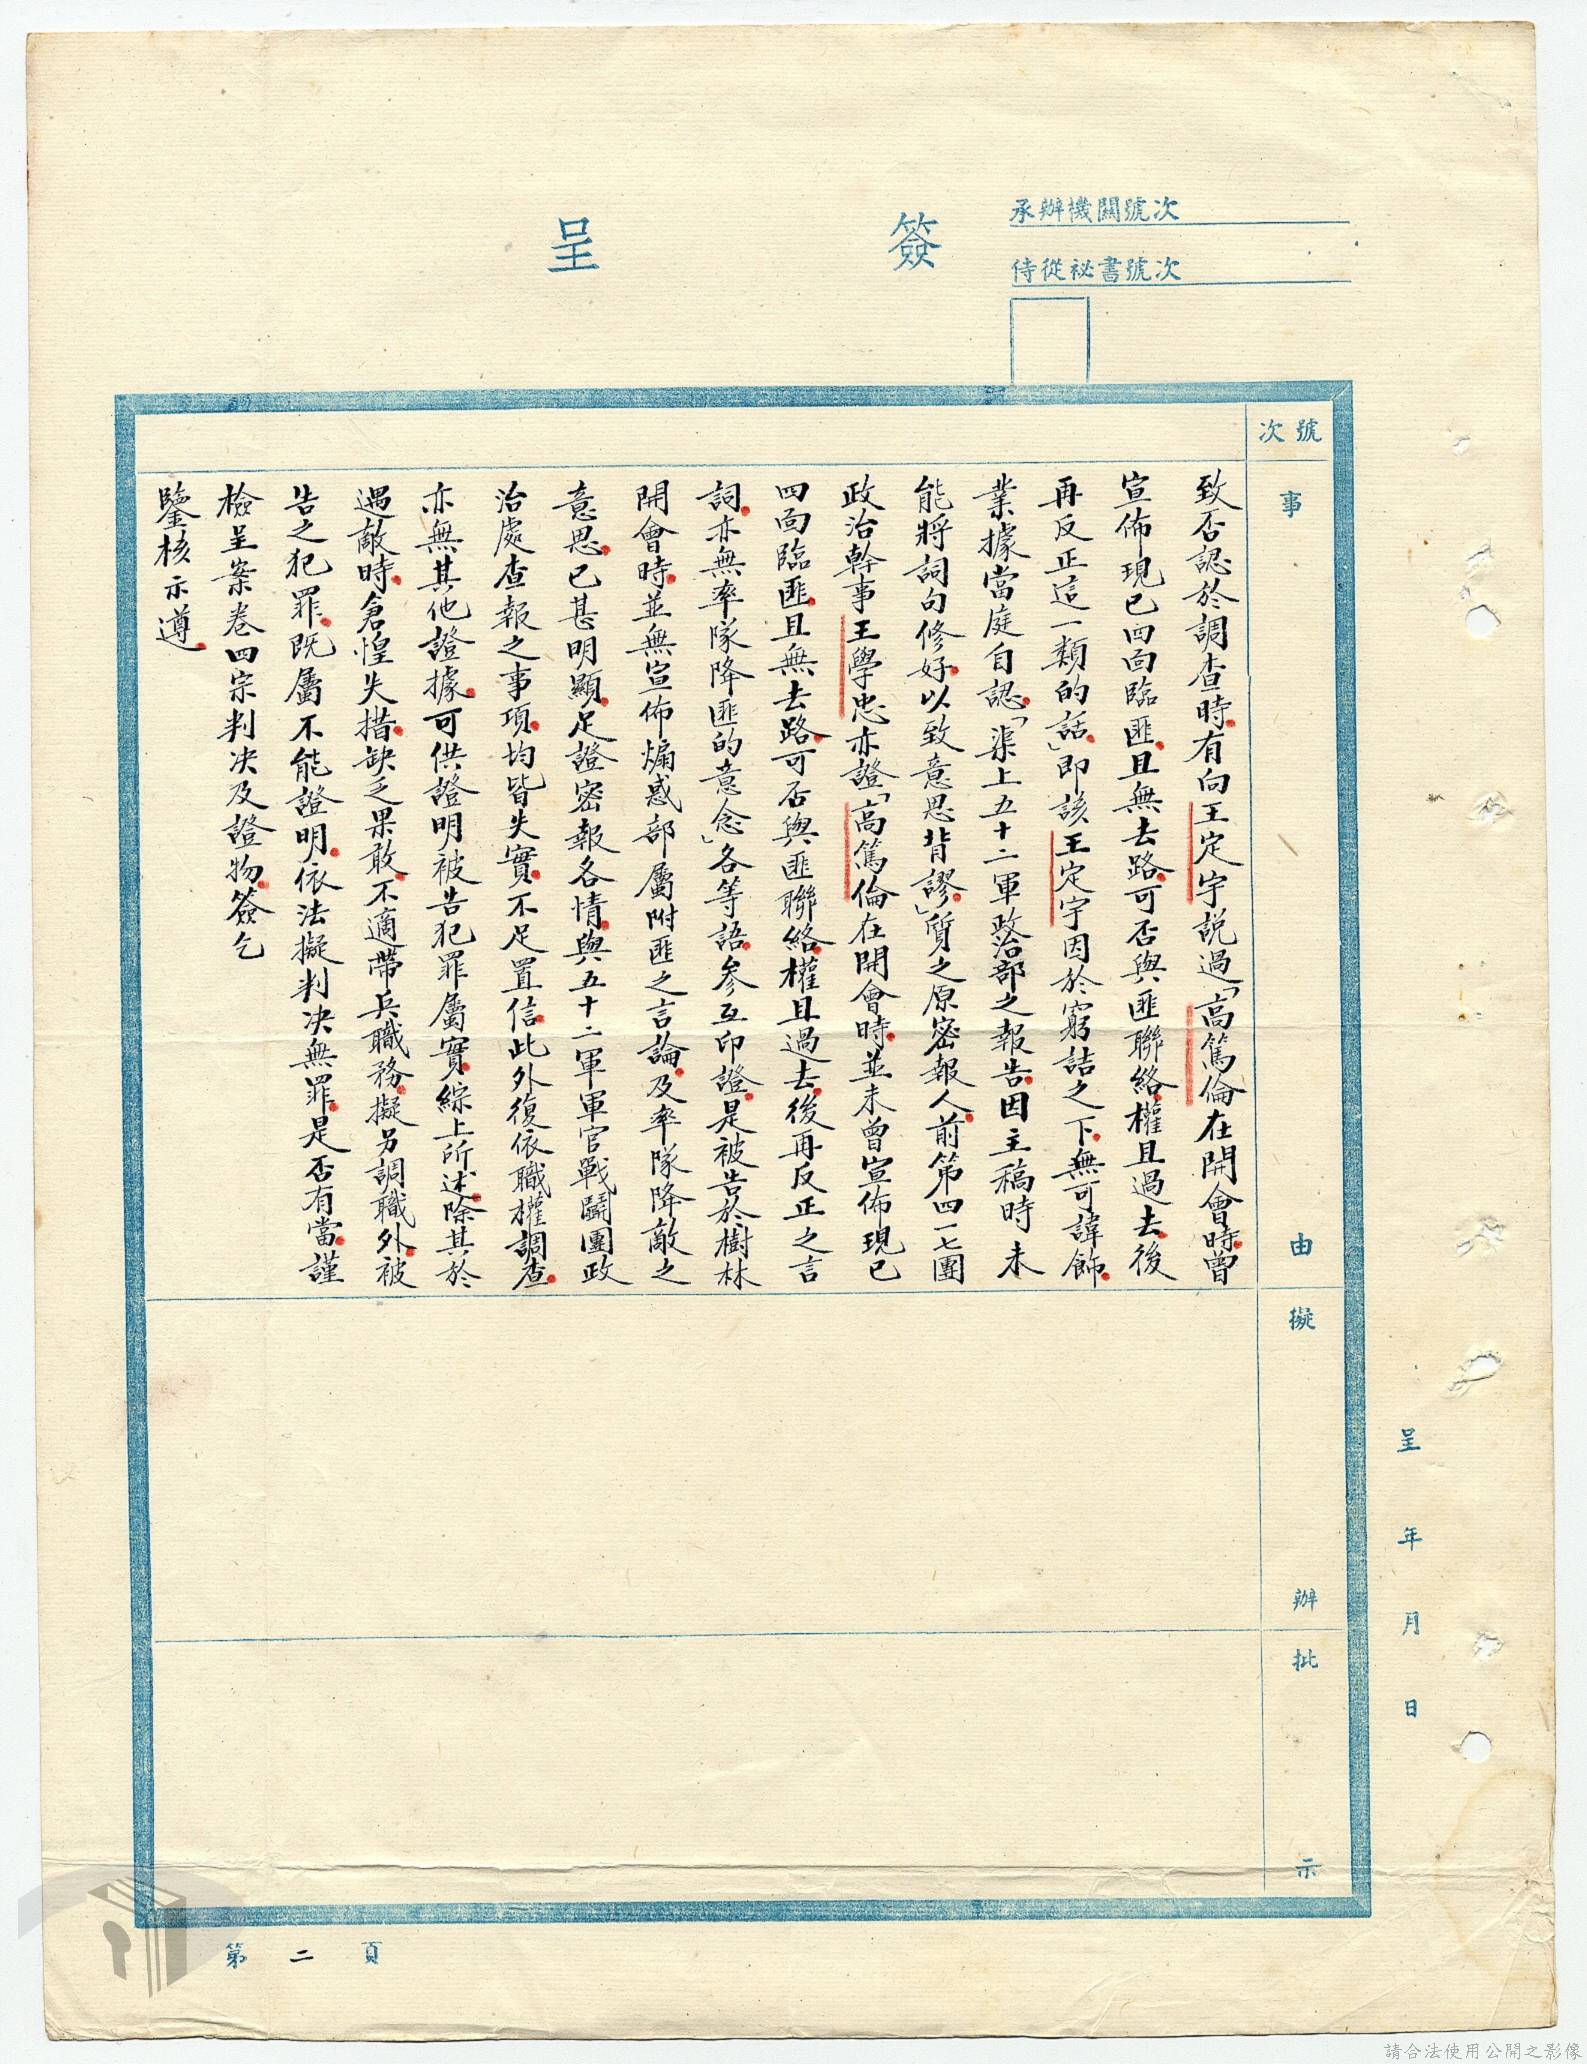 簽呈
承辦機關號次
侍從祕書號次
號次
事由
擬辦
批示
呈 年 月 日
致否認於調查時有向王定宇說過「高篤倫在開會時曾
宣佈現已四面臨匪且無去路可否與匪聯絡權且過去後
再反正這一類的話」即該王定宇因於窮詰之下無可諱飾
業據當庭自認「渠上五十二軍政治部之報告因主稿時未
能將詞句修好以致意思背謬」質之原密報人前第四一七團
政治幹事王學忠亦證「高篤倫在開會時並未曾宣佈現已
四面臨匪且無去路可否與匪聯絡權且過去後再反正之言
詞亦無率隊降匪的意念」各等語參互印證是被告於樹林
開會時並無宣佈煽惑部屬附匪之言論及率隊降敵之
意思已甚明顯足證密報各情與五十二軍軍官戰鬪團政
治處查報之事項均皆失實不足置信此外復依職權調查
亦無其他證據可供證明被告犯罪屬實綜上所述除其於
遇敵時倉惶失措缺乏果敢不適帶兵職務擬另調職外被
告之犯罪既屬不能證明依法擬判決無罪是否有當謹
檢呈案卷四宗判決及證物簽乞
鑒核示遵
第二頁
請合法使用公開之影像